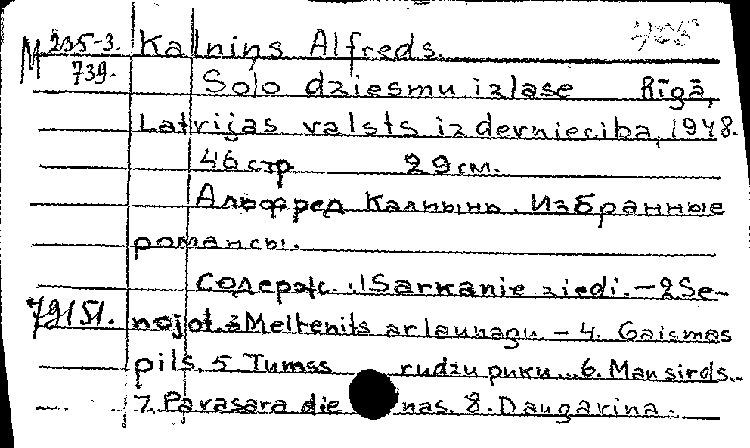 M 235-3. Kalniņs Alfreds.
739.
Solo dziesmu izlase Rīgā,
Latvijas valsts izdevniecība, 1948.
46 стр 29 см.
Альфред Калнынь. Избранные
романсы.
Содерж.: 1 Sarkanie ziedi. - 2 Se-
79151. nojot. 3 Meltenits ar launagu. - 4. Gaismas
pils. 5 Tumss rudzu puku... 6. Man sirds..
7. Pavasara die nas. 8. Daugavina.